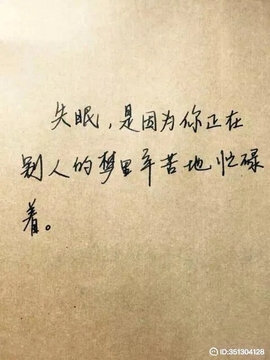 失眠，是因为你正在
别人的梦里辛苦地忙碌
着。
ID:351304128